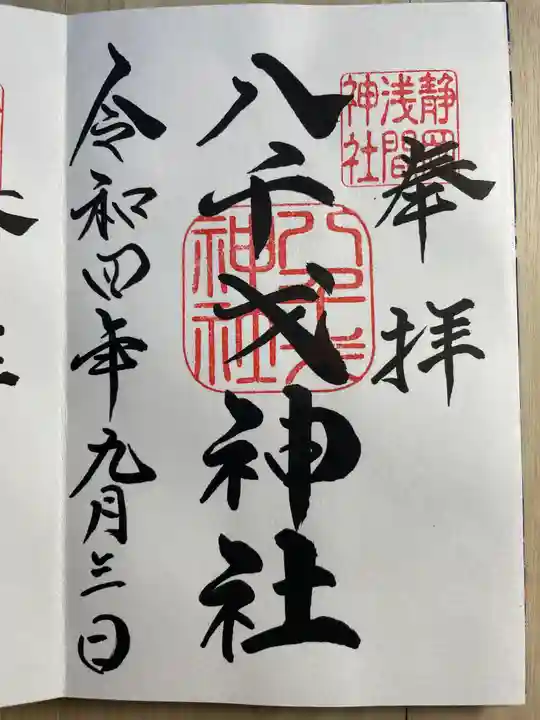 奉拝
静岡
浅間
神社
八千戈神社
八千戈
神社
令和四年九月三日